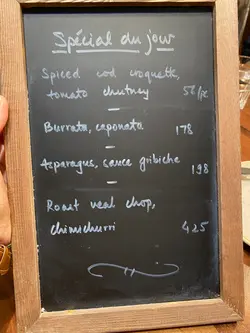 Spécial du jour
Spiced cod croquette,
tomato chutney 58/pc
Burrata, caponata 178
Asparagus, sauce gribiche 198
Roast veal chop,
chimichurri 425